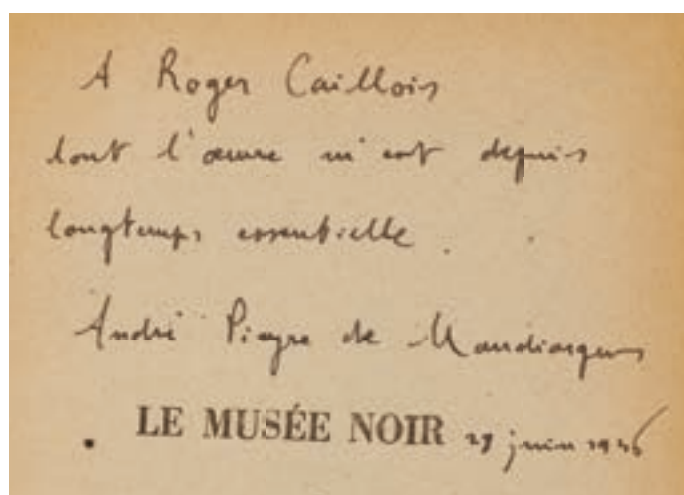 A Roger Caillois
dont l'œuvre m'est depuis
longtemps essentielle.
André Pieyre de Mandiargues
LE MUSÉE NOIR juin 1946